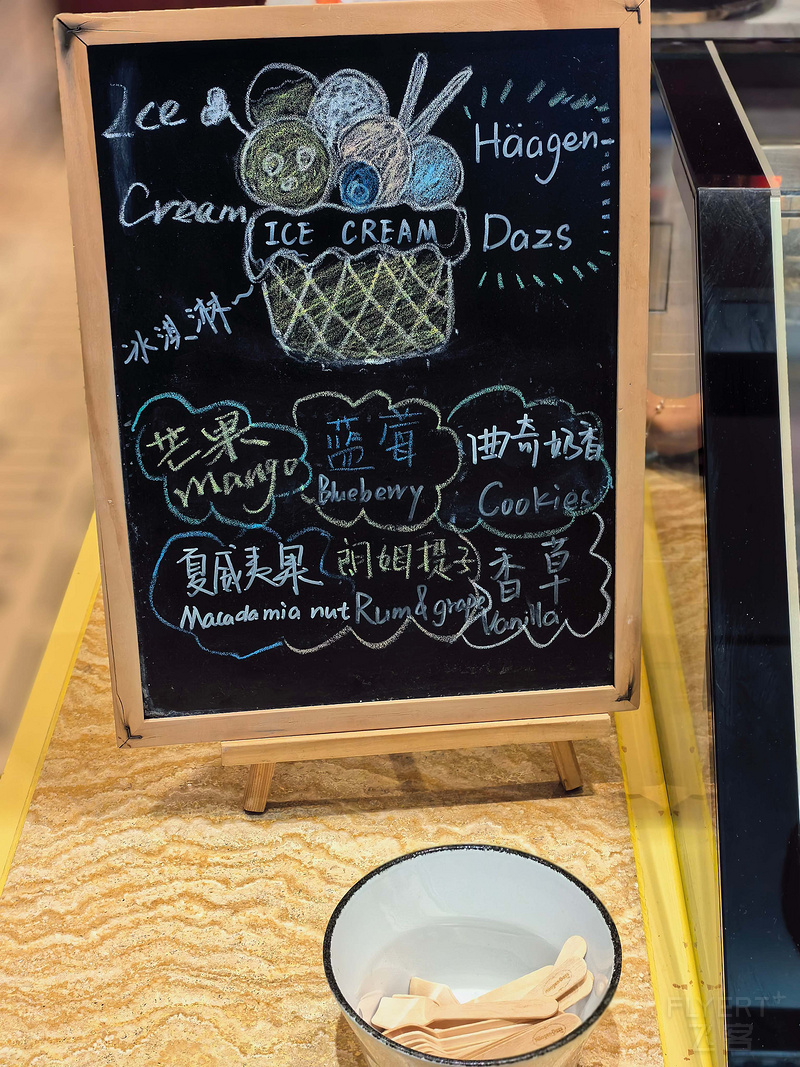 Ice
Cream
冰淇淋
ICE CREAM
Häagen-
Dazs
芒果
Mango
蓝莓
Blueberry
曲奇奶香
Cookies
夏威夷果
Macadamia nut
朗姆提子
Rum & grape
香草
Vanilla
FLYERT+
飞客